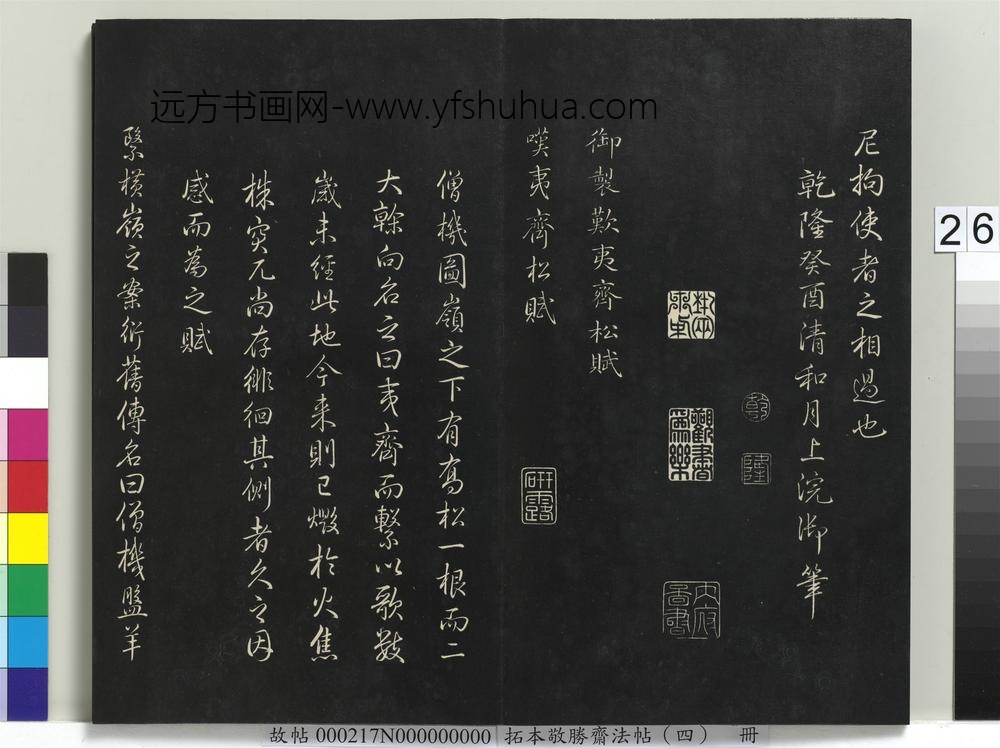 远方书画网-www.yfshuhua.com
尼拘使者之相過也
乾隆癸酉清和月上浣御筆
乾
隆
觀書爲樂
内府書
御製歎夷齊松賦
嘆夷齊松賦
研露
僧機圖嶺之下有喬松一根而二
大榦向名之曰夷齊而繫以歌數
歲未經此地今来則已燬於火焦
株突兀尚存徘徊其側者久之因
感而為之賦
繄橫嶺之案衍舊傳名曰僧機盤羊
26
故帖 000217N000000000 拓本敬勝齋法帖（四） 冊